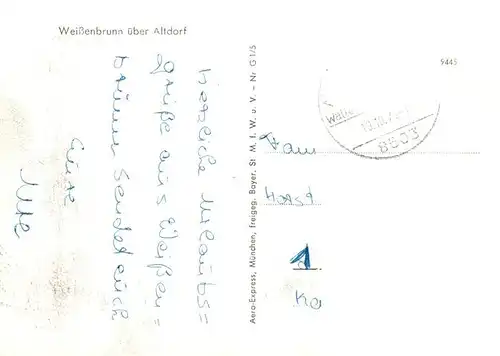 Weißenbrunn über Altdorf
herzliche Urlaubs=
grüße aus Weißen=
brunn sendet euch
eure
Ute
Aero-Express, München, Freigeg. Bayer. St. M. f. W. u. V. – Nr G 1/5
9445
8503
Fam
Horst
1.
Ka